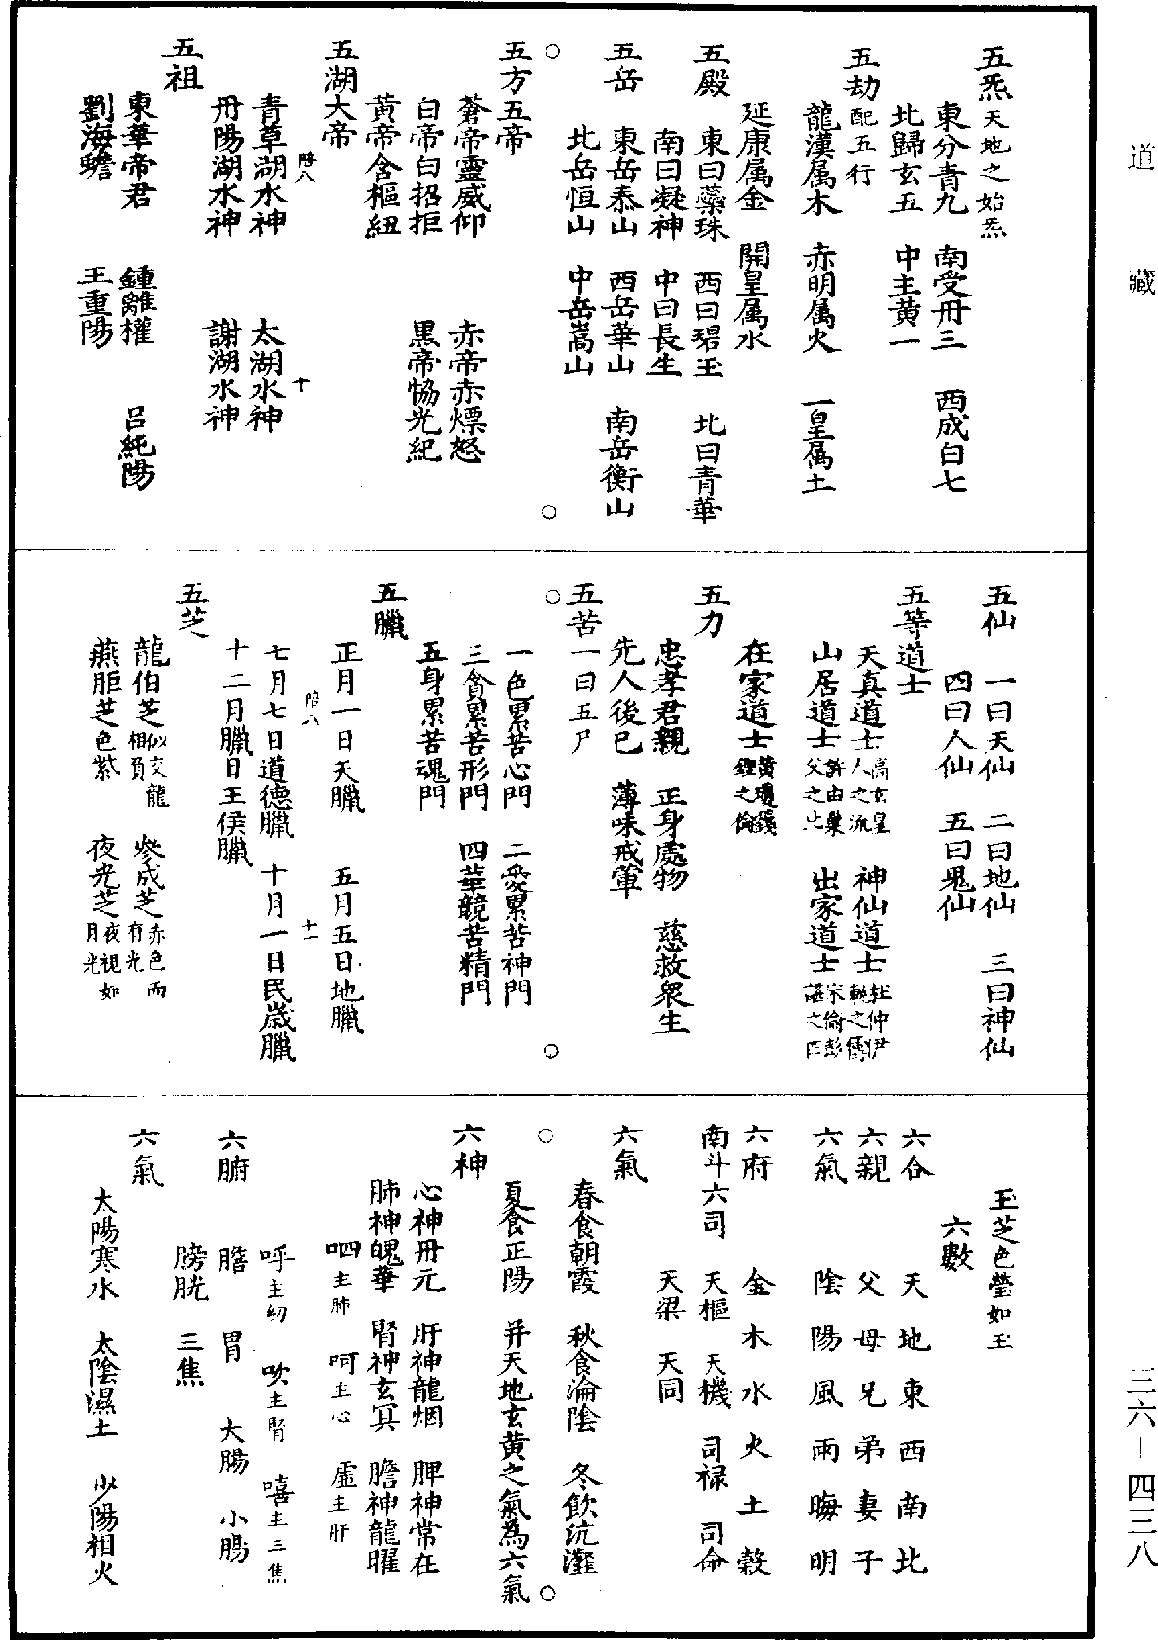 道藏
五炁天地之始炁
東分青九 南受丹三 西成白七
北歸玄五 中主黃一
五劫配五行
龍漢属木 赤明属火 一皇属土
延康属金 開皇属水
五殿 東曰蘂珠 西曰碧玉 北曰青華
南曰凝神 中曰長生
五岳 東岳泰山 西岳華山 南岳衡山
北岳恒山 中岳嵩山
五方五帝
蒼帝靈威仰 赤帝赤熛怒
白帝白招拒 黑帝恊光紀
黃帝含樞紐
五湖大帝
陪八 十
青草湖水神 太湖水神
丹陽湖水神 謝湖水神
五祖
東華帝君 鍾離權 呂純陽
劉海蟾 王重陽
五仙 一曰天仙 二曰地仙 三曰神仙
四曰人仙 五曰鬼仙
五等道士
天真道士高玄皇人之流 神仙道士杜仲尹軌之儔
山居道士許由巢父之比 出家道士宋倫彭諶之匹
在家道士黃瓊籛鏗之倫
五力
忠孝君親 正身處物 慈救衆生
先人後己 薄味戒葷
五苦一曰五尸
一色累苦心門 二愛累苦神門
三貪累苦形門 四華競苦精門
五身累苦魂門
五臘
正月一日天臘 五月五日地臘
陪八 十一
七月七日道德臘 十月一日民歲臘
十二月臘日王侯臘
五芝
龍伯芝似交龍相負 參成芝赤色而有光
燕胎芝色紫 夜光芝夜視如月光
玉芝色瑩如玉
六數
六合 天地東西南北
六親 父母兄弟妻子
六氣 陰陽風雨晦明
六府 金木水火土穀
南斗六司 天樞 天機 司禄 司命
天梁 天同
六氣
春食朝霞 秋食淪陰 冬飲沆瀣
夏食正陽 并天地玄黃之氣為六氣
六神
心神丹元 肝神龍烟 脾神常在
肺神皝華 腎神玄冥 膽神龍曜
呬主肺 呵主心 虛主肝
呼主 吹主腎 嘻主三焦
六腑 膽 胃 大腸 小腸
膀胱 三焦
六氣
太陽寒水 太陰濕土 少陽相火
三六—四三八